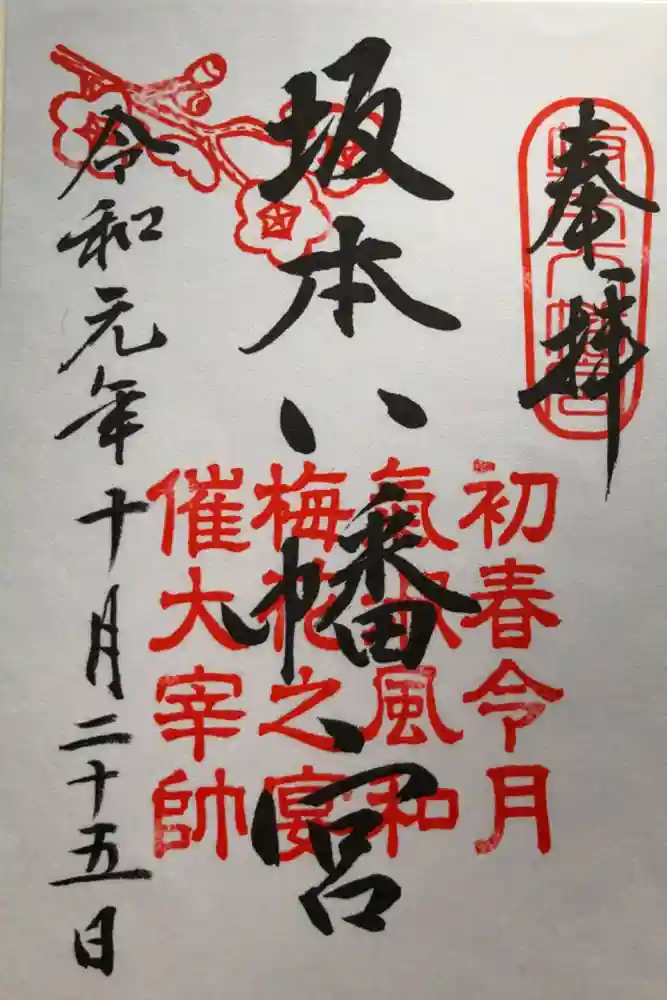 奉拝
初春令月
氣淑風和
坂本八幡宮
梅花之宴
催大宰帥
令和元年十月二十五日